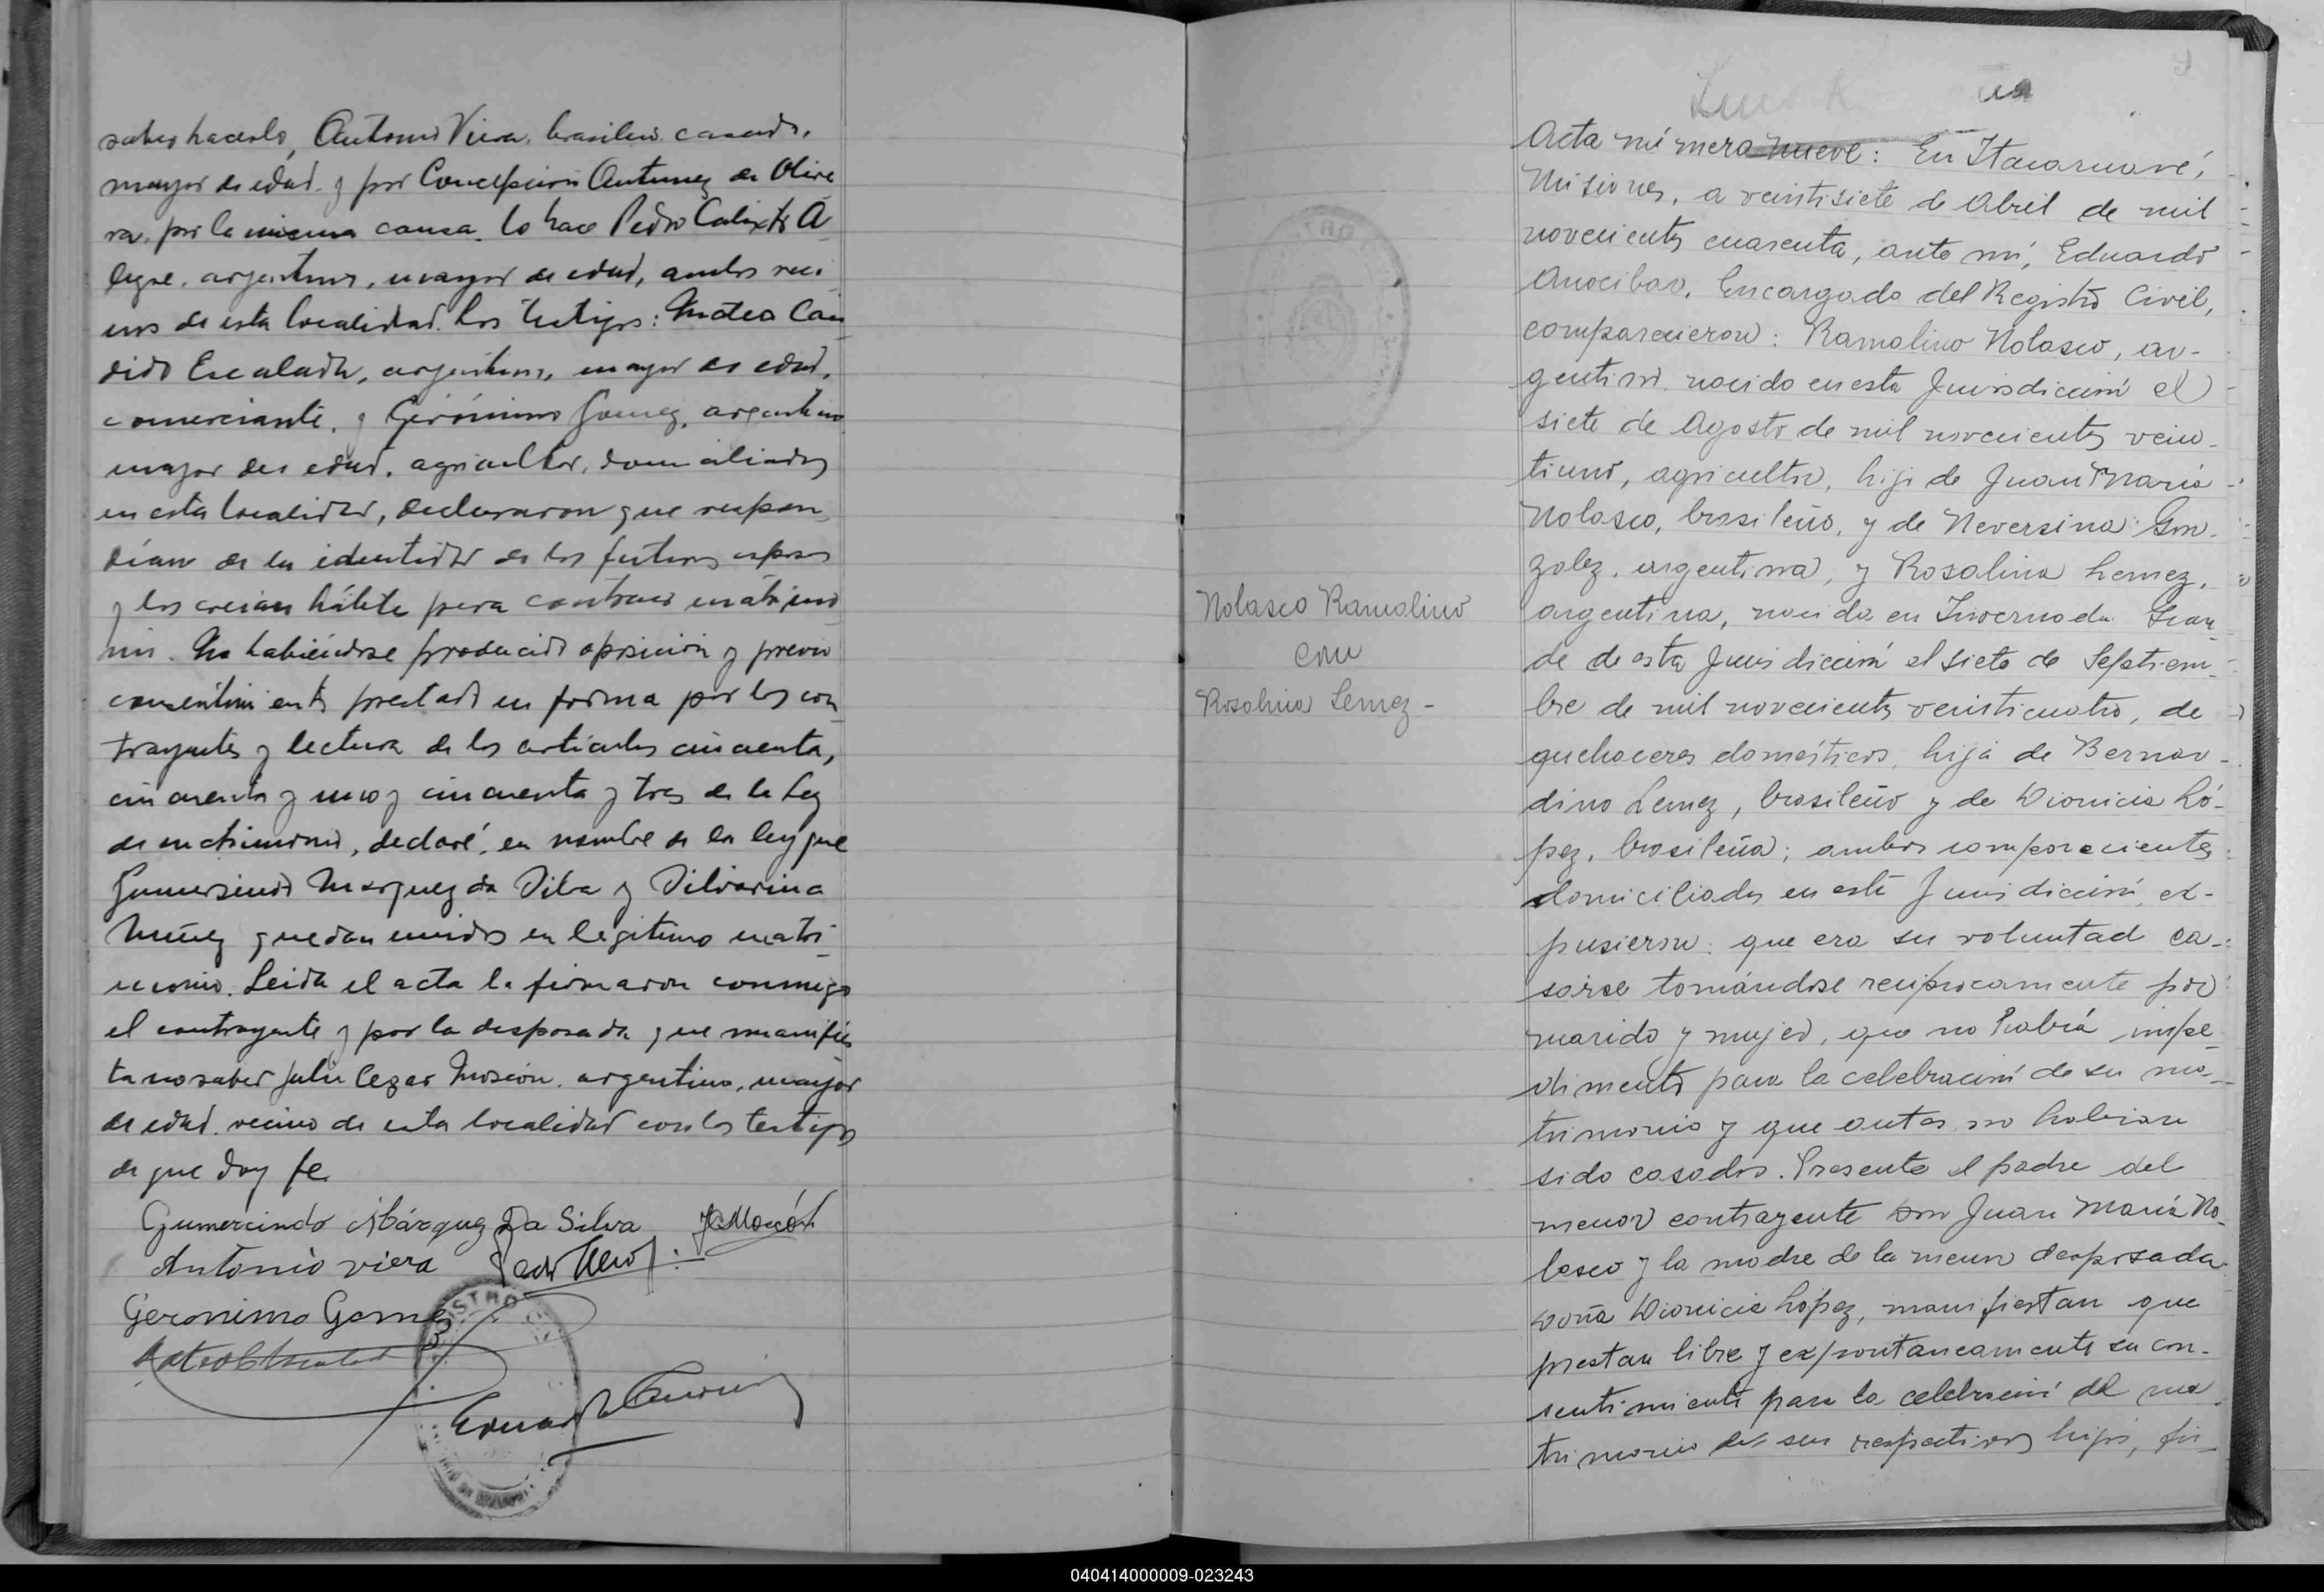 saber hacerlo, Antonio Viera, brasilero, casado,
mayor de edad, y por Concepcion Antunez de Olive
ra, por la misma causa, lo hace Pedro Calixto A
legre, argentino, mayor de edad, ambos veci
nos de esta localidad. Los testigos: Mateo Can
dido Escalada, argentino, mayor de edad,
comerciante, y Gerónimo Gomez, argentino
mayor de edad, agricultor, domiciliados
en esta localidad, declararon que respon
dían de la identidad de los futuros esposos
y los creían hábiles para contraer matrimo
nio. No habiéndose producido oposición y previo
consentimiento prestado en forma por los con
trayentes y lectura de los artículos cincuenta,
cincuenta y uno y cincuenta y tres de la Ley
de matrimonio, declaré, en nombre de la ley que
Gumersindo Marquez da Silva y Silvarina
Nuñez quedan unidos en legítimo matri-
monio. Leida el acta la firmaron conmigo
el contrayente y por la desposada que manifies
ta no saber Julio Cezar Moscón, argentino, mayor
de edad, vecino de esta localidad con los testigos
de que doy fe.
Gumercindo Márquez Da Silva
Antonio viera
Geronimo Gomez
Nolasco Ramolino
con
Rosalina Lemez -
Acta número nueve: En Itacaruaré,
Misiones, a veintisiete de Abril de mil
novecientos cuarenta, ante mí, Eduardo
Anocibar, Encargado del Registro Civil,
comparecieron: Ramolino Nolasco, ar-
gentino, nacido en esta Jurisdicción el
siete de Agosto de mil novecientos vein-
tiuno, agricultor, hijo de Juan María
Nolasco, brasileño, y de Neversina Gon-
zalez, argentina, y Rosalina Lemez,
argentina, nacida en Invernada Gran
de de esta Jurisdicción el siete de Septiem-
bre de mil novecientos veinticuatro, de
quehaceres domésticos, hija de Bernar-
dino Lemez, brasileño y de Dionicia Ló-
pez, brasileña; ambos comparecientes
domiciliados en esta Jurisdicción, ex-
pusieron: que era su voluntad ca-
sarse tomándose recíprocamente por
marido y mujer, que no había impe
dimento para la celebración de su ma-
trimonio y que antes no habían
sido casados. Presente el padre del
menor contrayente don Juan María No-
lasco y la madre de la menor desposada
doña Dionicia López, manifiestan que
prestan libre y expontaneamente su con-
sentimiento para la celebración del ma
trimonio de sus respectivos hijos, fir-
040414000009-023243